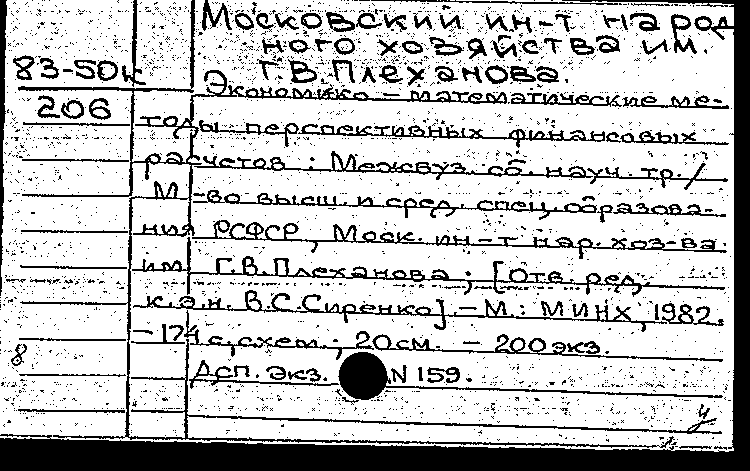 Московский ин-т народ
ного хозяйства им.
83-50к Г.В.Плеханова.
206 Экономико-математические ме-
тоды перспективных финансовых
расчетов: Межвуз. сб. науч. тр./
М-во высш. и сред. спец. образова-
ния РСФСР, Моск. ин-т нар. хоз-ва
им. Г.В.Плеханова; [Отв. ред.
к.э.н. В.С.Сиренко]. - М.: МИНХ, 1982.
-174 с., схем.; 20 см. - 200 экз.
8
Деп. экз. N 159.
у